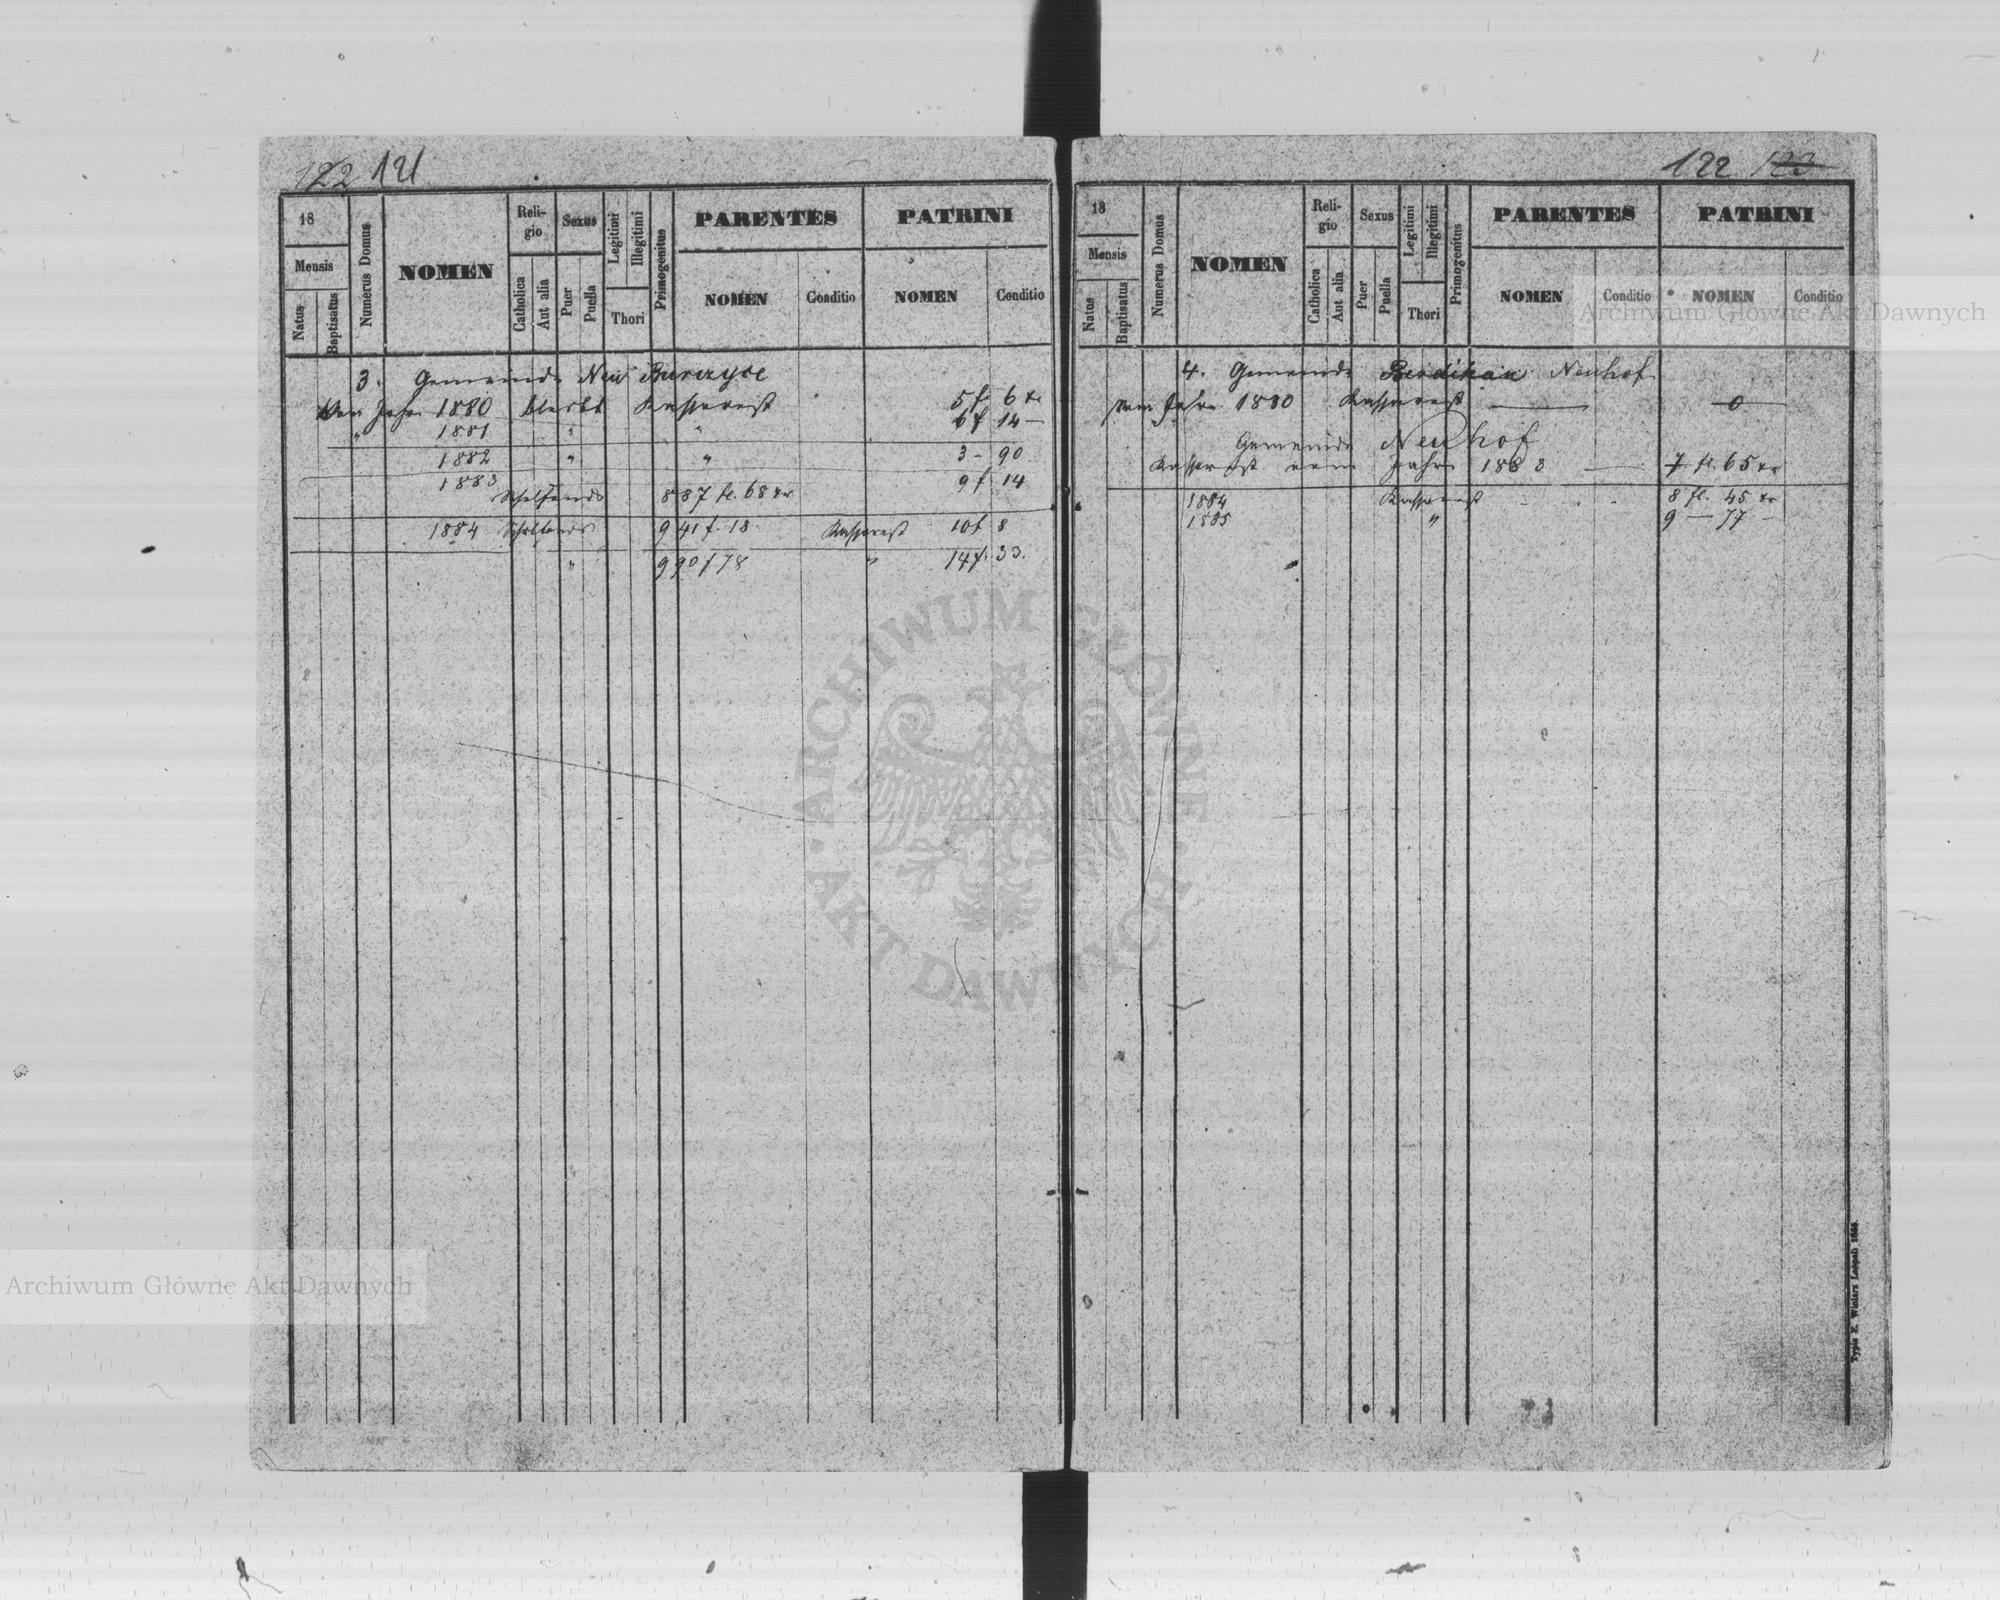 122 121
18
Mensis
Natus
Baptisatus
Numerus Domus
NOMEN
Reli-
gio
Catholica
Aut alia
Sexus
Puer
Puella
Legitimi
Illegitimi
Thori
Primogenitus
PARENTES
NOMEN
Conditio
PATRINI
NOMEN
Conditio
3. Gemeinde Neu Burczyce
Vom Jahre 1880 bleibt Kasserest 5 f 6 kr
" 1881 " " 6 f 14 –
1882 " " 3 – 90
1883 9 f 14
887 fl. 68 kr
1884 941 f. 18. Kasserest 10 f 8
" 990 f 78 " 14 f. 33.
122 123
18
Mensis
Natus
Baptisatus
Numerus Domus
NOMEN
Reli-
gio
Catholica
Aut alia
Sexus
Puer
Puella
Legitimi
Illegitimi
Thori
Primogenitus
PARENTES
NOMEN
Conditio
PATRINI
NOMEN
Conditio
4. Gemeinde Berdikau Neuhof
Vom Jahre 1880 Kasserest — 0 —
Gemeinde Neuhof
Kasserest vom Jahre 1883 — 7 fl. 65 kr
1884 Kasserest 8 fl. 45 kr
1885 " 9 — 77 –
Typis E. Winiarz Leopoli 1866.
Archiwum Główne Akt Dawnych
ARCHIWUM GŁÓWNE AKT DAWNYCH
Archiwum Główne Akt Dawnych